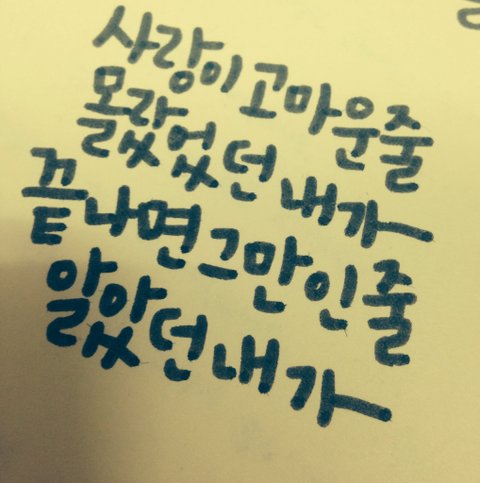 사랑이 고마운줄
몰랐었던 내가
끝나면 그만인줄
알았던 내가